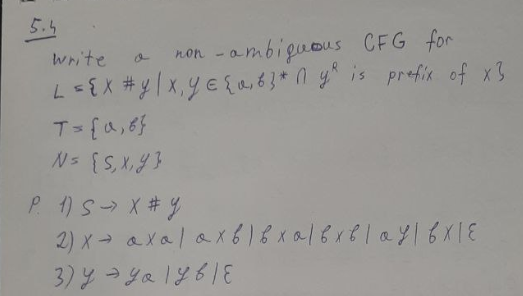 5.4
write a non-ambiguous CFG for
L = {x # y | x, y ∈ {a,b}* ∩ yᴿ is prefix of x}
T = {a, b}
N = {S, X, Y}
P. 1) S → X # Y
2) X → a X a | a X b | b X a | b X b | a Y | b X | ε
3) Y → Y a | Y b | ε